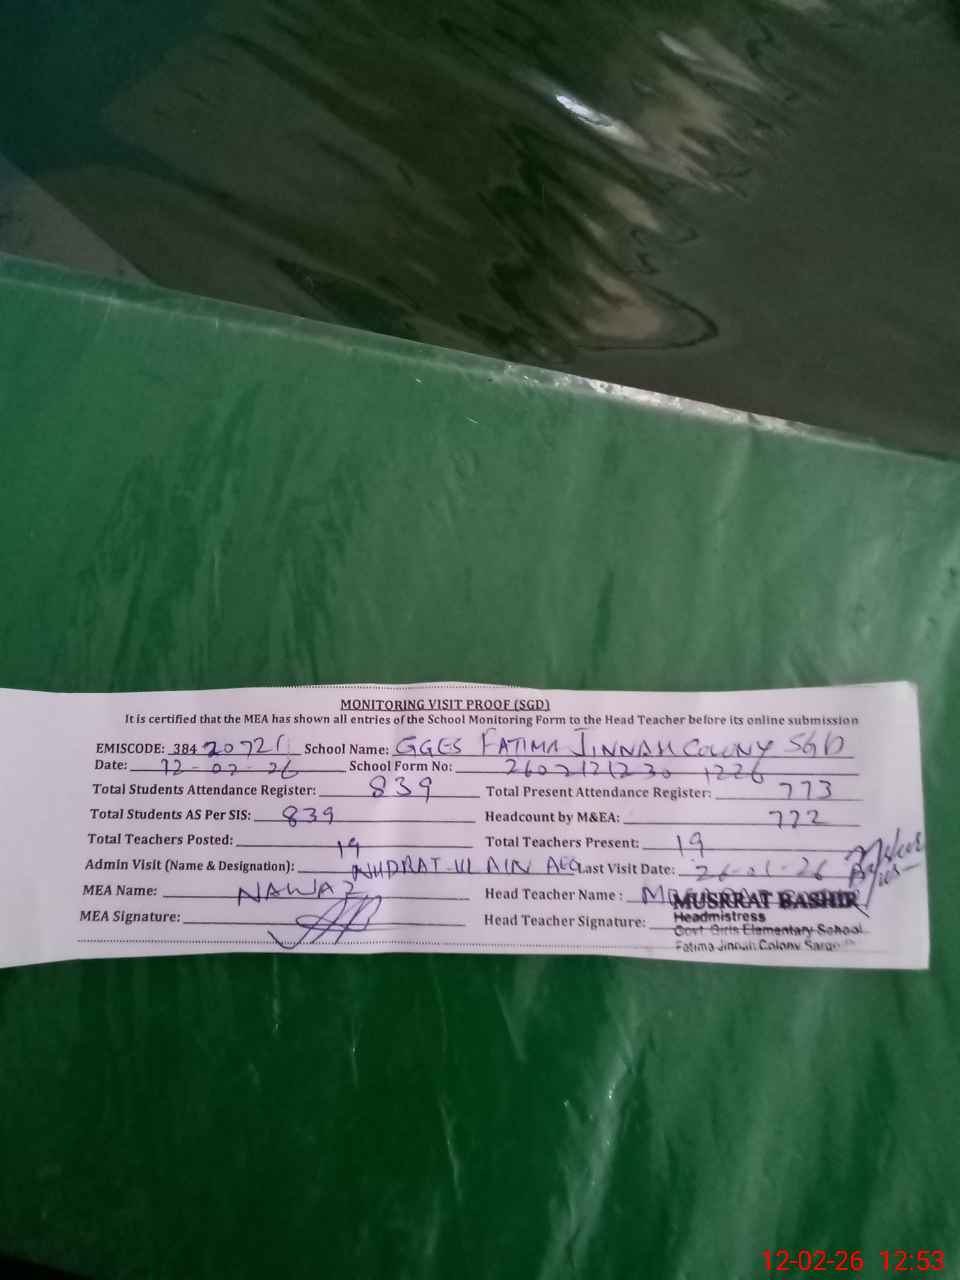 MONITORING VISIT PROOF (SGD)
It is certified that the MEA has shown all entries of the School Monitoring Form to the Head Teacher before its online submission
EMISCODE: 384 20721 School Name: GGES FATIMA JINNAH COLONY SGD
Date: 12-02-26 School Form No: 2602121230 1226
Total Students Attendance Register: 839 Total Present Attendance Register: 773
Total Students AS Per SIS: 839 Headcount by M&EA: 772
Total Teachers Posted: 19 Total Teachers Present: 19
Admin Visit (Name & Designation): NUDRAT-UL AIN AEO Last Visit Date: 26-01-26
MEA Name: NAWAZ Head Teacher Name : MUSRRAT BASHIR
MEA Signature: Head Teacher Signature: Headmistress
Govt Girls Elementary School
Fatima Jinnah Colony
12-02-26 12:53